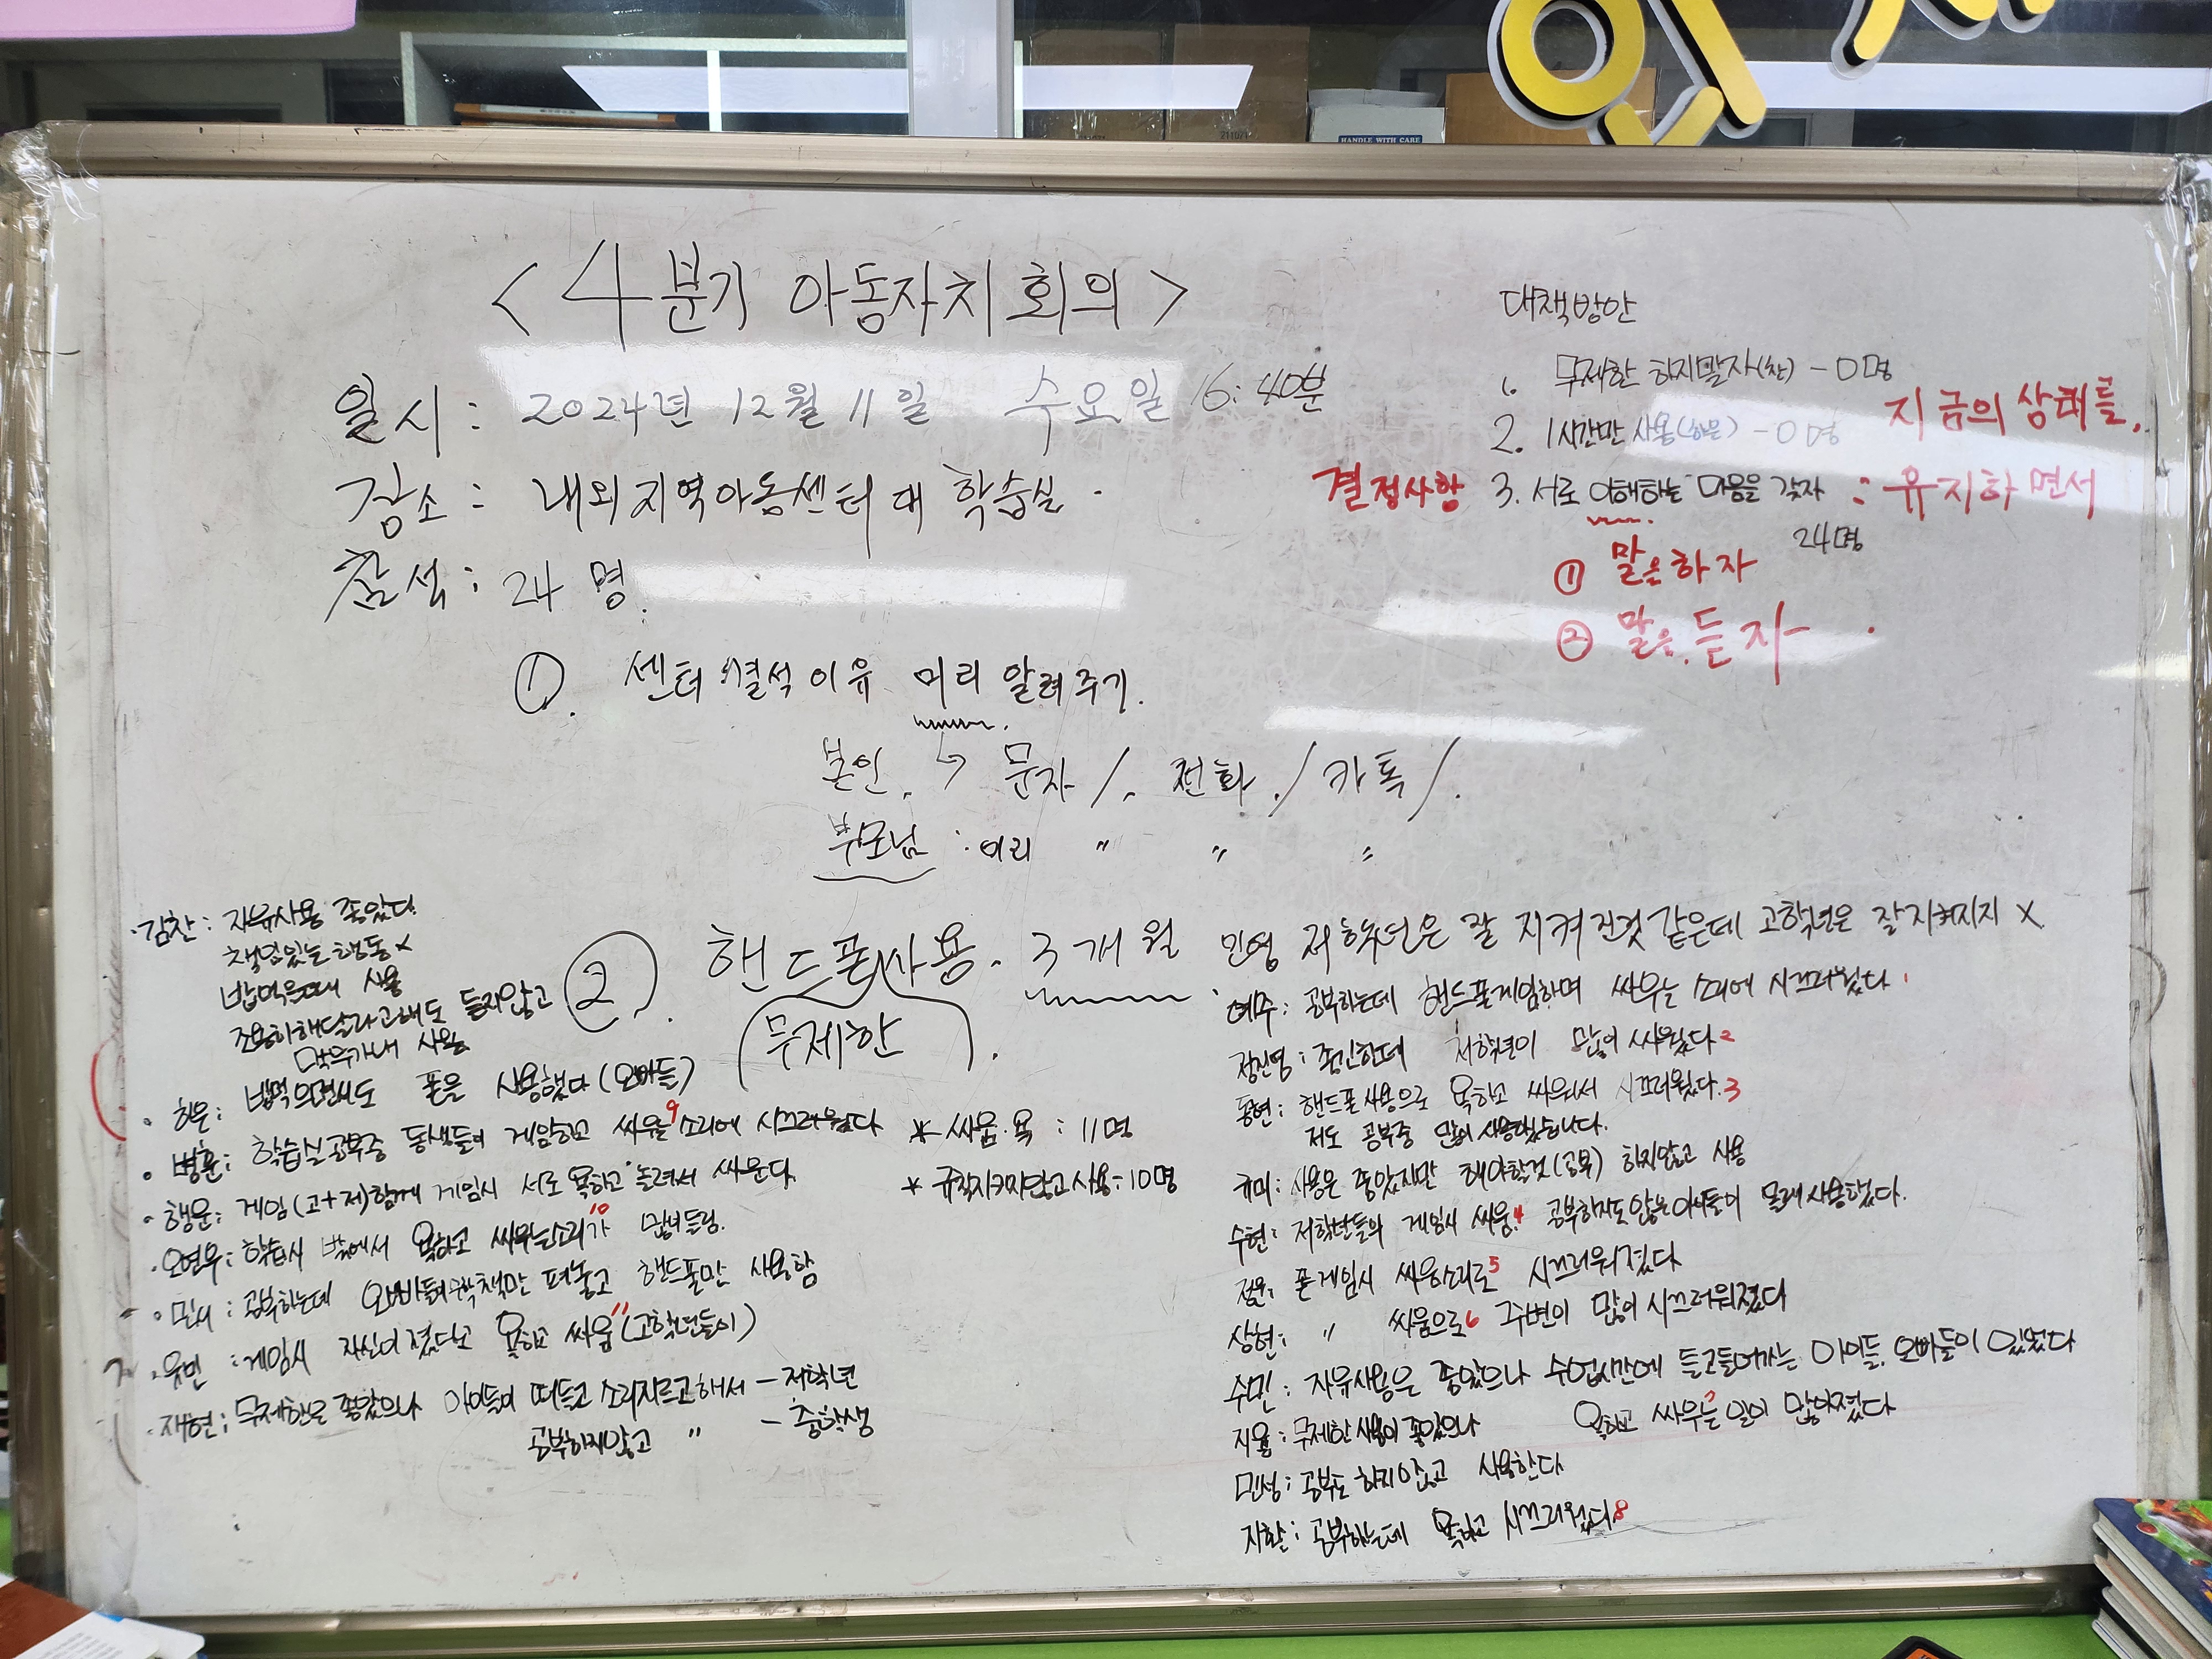 < 4분기 아동자치 회의 >
일시 : 2024년 12월 11일 수요일 16:40분
장소 : 내외지역아동센터 대 학습실.
참석 : 24명.
① 센터 결석이유 미리 알려주기.
본인. → 문자 / 전화 / 카톡 /.
부모님 : 미리 〃 〃 〃
② 핸드폰사용. 3개월
무제한
대책방안
1. 무제한 하지말자(찬) - 0명
2. 1시간만 사용(하은) - 0명
결정사항 3. 서로 이해하는 마음을 갖자 : 유지하면서
지금의 상태를,
24명
① 말을하자
② 말을 듣자
·김찬 : 자유사용 좋았다.
책임있는 행동 X
밥먹을때 사용
조용히해달라고해도 듣지않고
막무가내 사용
· 하은 : 밥먹으면서도 폰을 사용했다 (오빠들)
· 병훈 : 학습실 공부중 동생들이 게임하고 싸울 9 소리에 시끄러웠다
· 행운 : 게임(고+저)함께 게임시 서로 욕하고 놀려서 싸운다.
· 오연우 : 학습시 밖에서 욕하고 싸우는소리가 10 많이들림.
· 민서 : 공부하는데 오빠들이 수학책만 펴놓고 핸드폰만 사용함
· 유민 : 게임시 자신이 졌다고 욕하고 싸움 11 (고학년들이)
· 재현 : 무제한은 좋았으나 아이들이 떠들고 소리지르고해서 - 저학년
공부하지않고 〃 - 중학생
* 싸움·욕 : 11명
* 규칙지키지않고 사용 : 10명
민영 저학년은 잘 지켜진것 같은데 고학년은 잘지켜지지 X
예주 : 공부하는데 핸드폰게임하며 싸우는 소리에 시끄러웠다 1
정진영 : 중간한데 저학년이 많이 싸웠다 2
동현 : 핸드폰사용으로 욕하고 싸워서 시끄러웠다. 3
저도 공부중 많이 사용했습니다.
규미 : 사용은 좋았지만 해야할것(공부) 하지않고 사용
수현 : 저학년들의 게임시 싸움. 4 공부하지도않은 아이들이 몰래사용했다.
정윤 : 폰게임시 싸움소리로 5 시끄러워졌다
상현 : 〃 싸움으로 6 주변이 많이 시끄러워졌다
수민 : 자유사용은 좋았으나 수업시간에 들고들어가는 아이들, 오빠들이 있었다
지율 : 무제한 사용이 좋았으나 욕하고 싸우는 7 일이 많아졌다
민성 : 공부도 하지않고 사용한다
지환 : 공부하는데 욕하고 시끄러웠다 8
HANDLE WITH CARE
211021